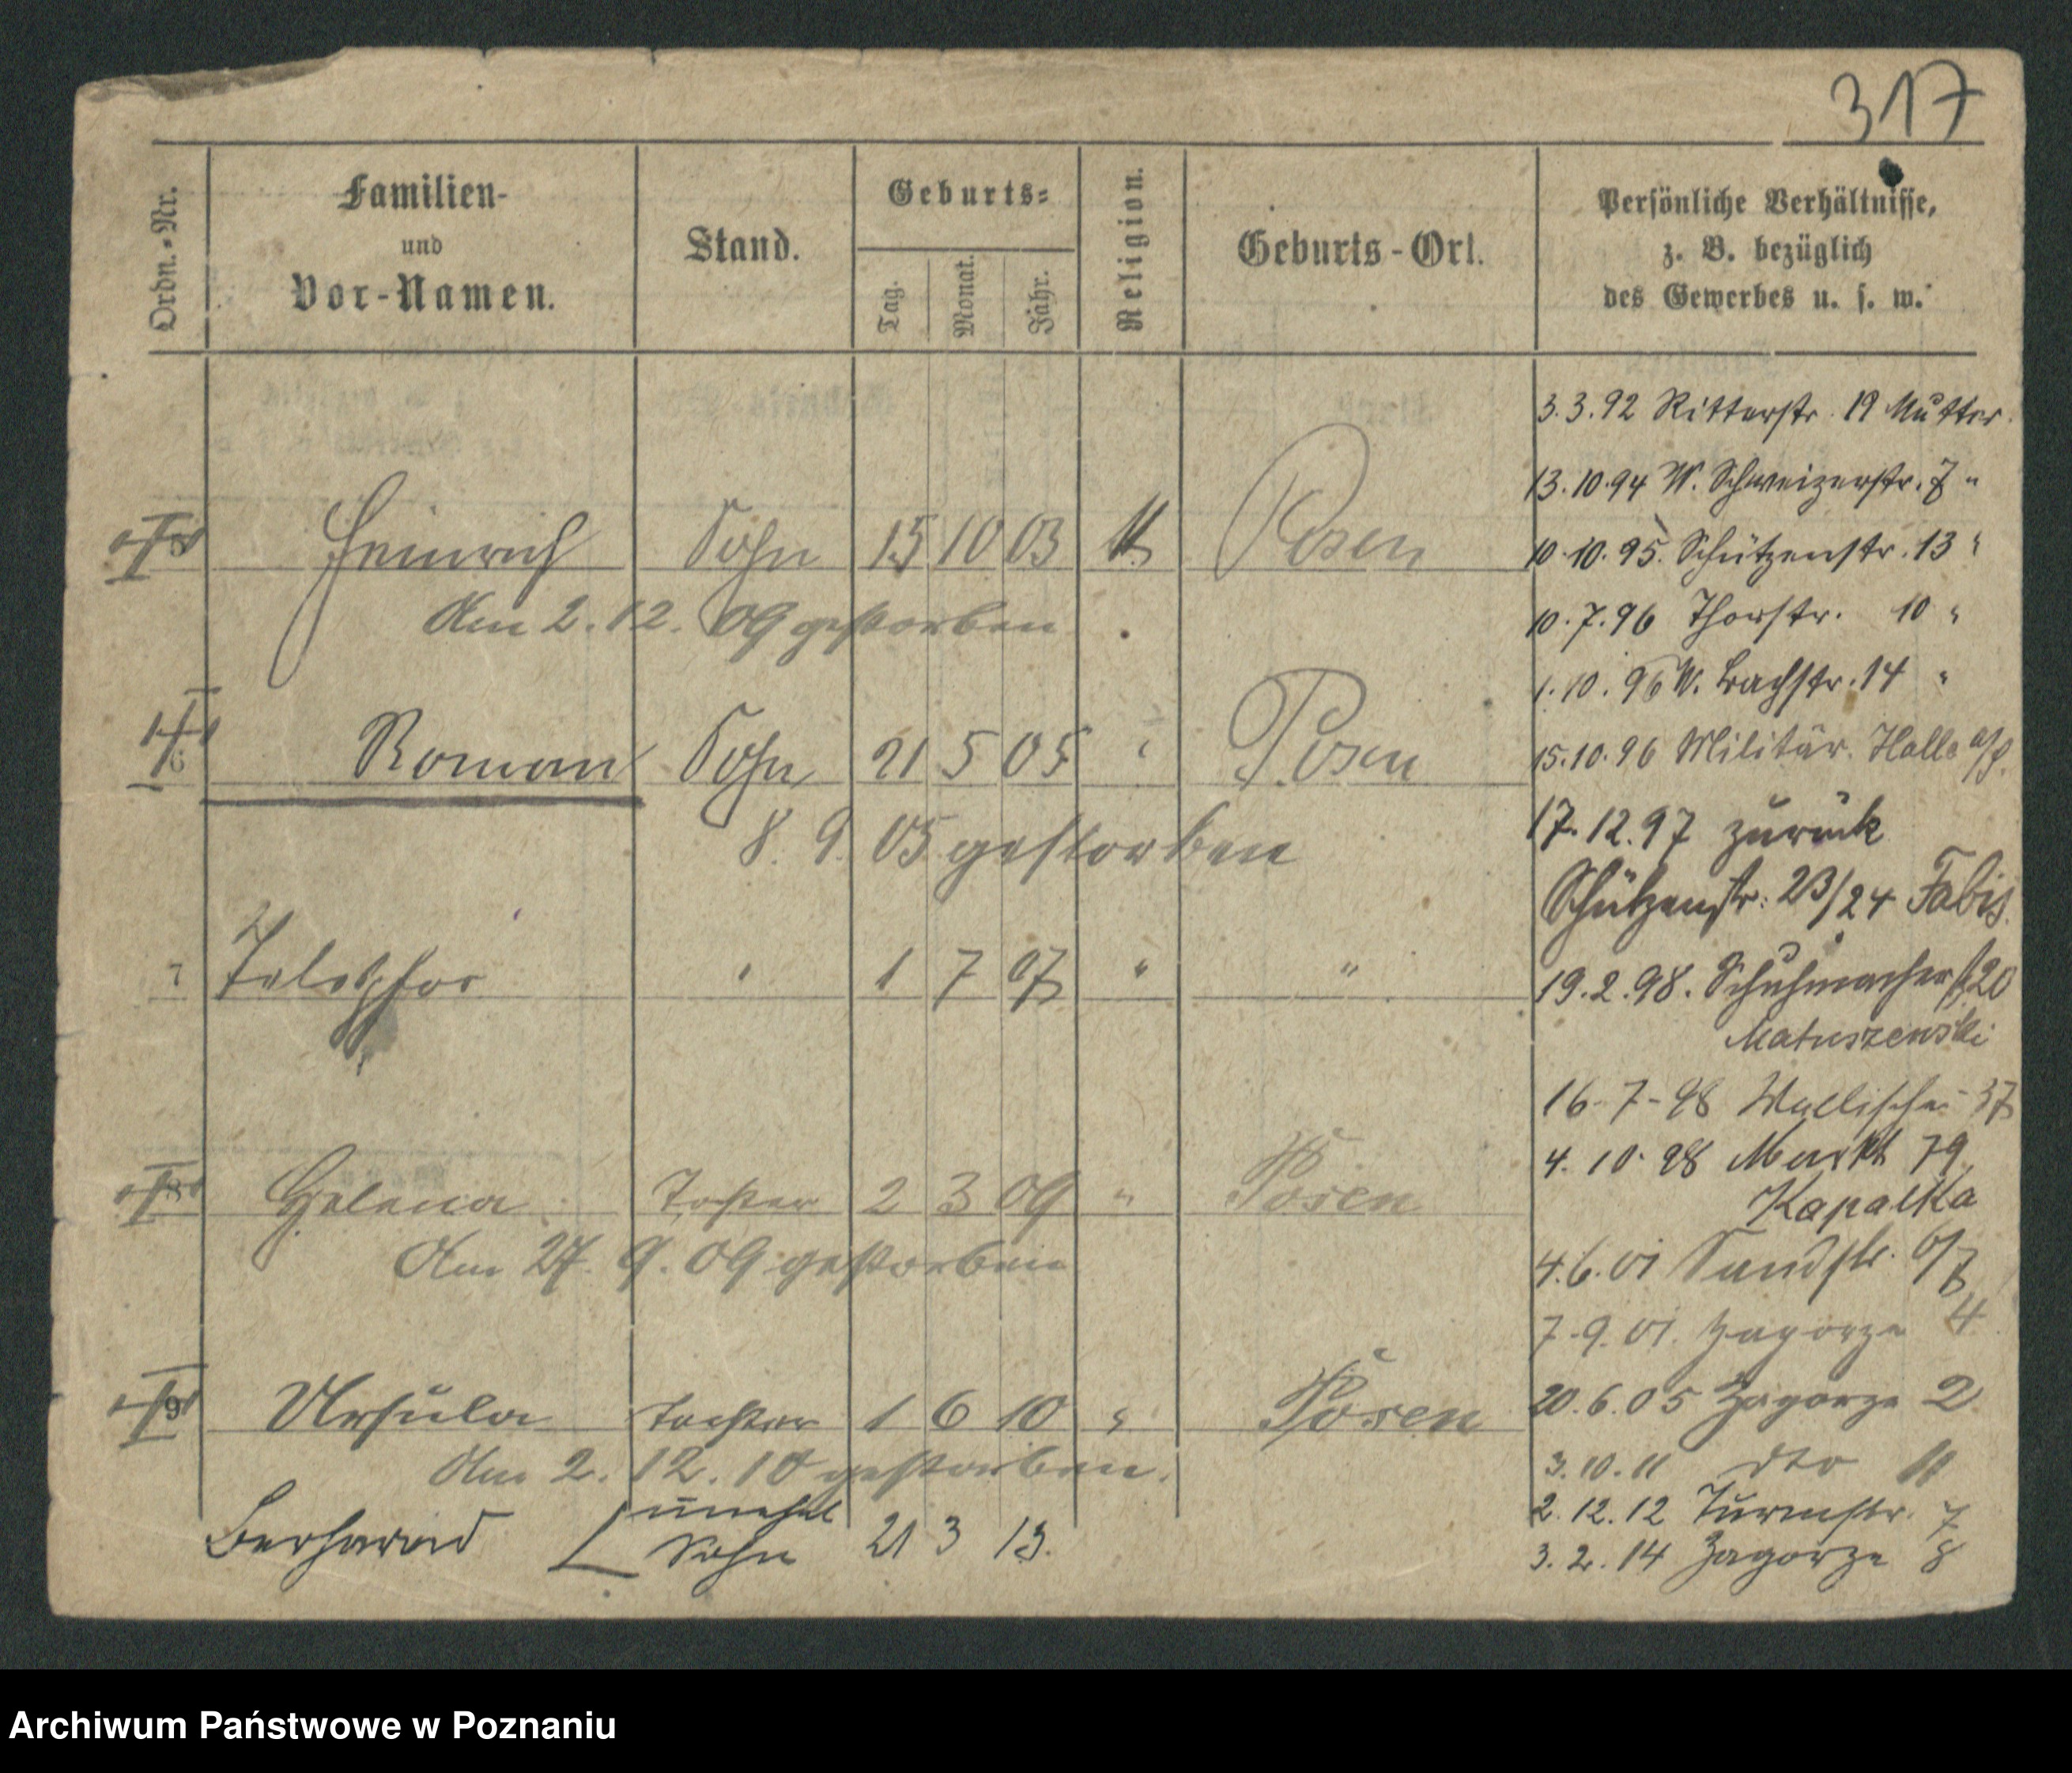 317
Ordn.-Nr.
Familien-
und
Vor-Namen.
Stand.
Geburts-
Tag.
Monat.
Jahr.
Religion.
Geburts-Ort.
Persönliche Verhältnisse,
z. B. bezüglich
des Gewerbes u. s. w.
5 Heinrich Sohn 15 10 03 k Posen
Am 2. 12. 09 gestorben
6 Roman Sohn 21 5 05 " Posen
8. 9. 05 gestorben
7 Telesphor " 1 7 07 " "
8 Helena Tochter 2 3 09 " Posen
Am 27. 9. 09 gestorben
9 Ursula Tochter 1 6 10 " Posen
Am 2. 12. 10 gestorben.
Berhard unehel
Sohn 21 3 13.
3.3.92 Ritterstr. 19 Mutter.
13.10.94 W. Schweizerstr. 7 "
10.10.95. Schützenstr. 13 "
10.7.96 Thorstr. 10 "
1.10.96 W. Bachstr. 14 "
15.10.96 Militär. Halle a/S.
17.12.97 zurück
Schützenstr. 23/24 Fabis.
19.2.98. Schuhmacherstr 20
Matuszewski
16-7-98 Wallischei 37
4.10.98 Markt 79
Kapalka
4.6.01 Sandstr. 6/7
7.9.01. Zagorze 4
20.6.05 Zagorze 2
3.10.11 dto 11
2.12.12 Turmstr. 7
3.2.14 Zagorze 8
Archiwum Państwowe w Poznaniu